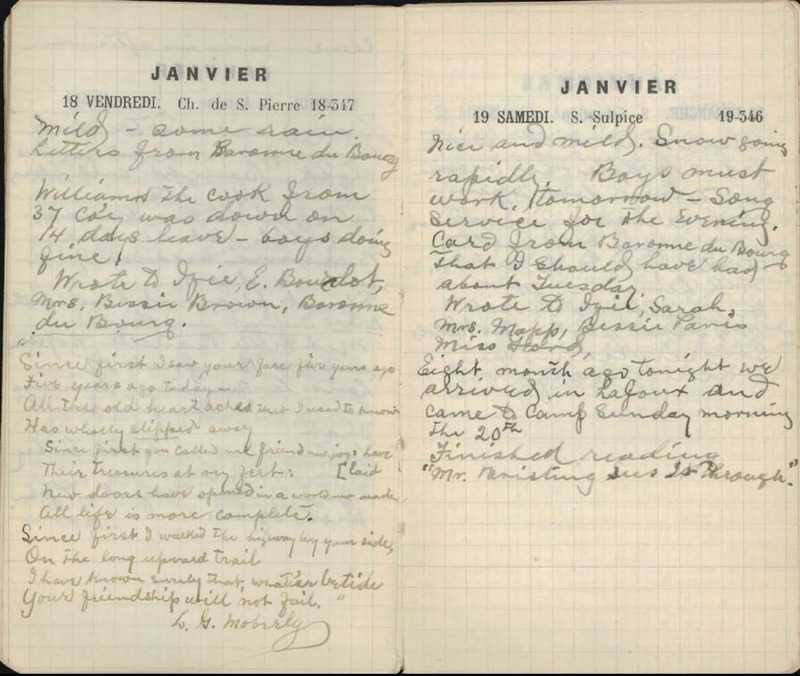 JANVIER
18 VENDREDI. Ch. de S. Pierre 18-347
Mild – some rain.
Letters from Baronne du Bourg
Williams the cook from
37 Coy was down on
14 days leave – boys doing
fine!
Wrote to Ivie, E. Bourdot,
Mrs. Bessie Brown, Baronne
du Bourg.
"Since first I saw your face five years ago
Five years ago today –
All the old heart aches that I used to know
Has wholly slipped away
Since first you called me friend new joys have
Their treasures at my feet: [laid
New doors have opened in a world new made
All life is more complete.
Since first I walked the highway by your side,
On the long upward trail
I have known surely that, whate'er betide
Your friendship will not fail."
L. G. Moberly
JANVIER
19 SAMEDI. S. Sulpice 19-346
Nice and mild. Snow going
rapidle. Boys must
work tomorrow – Song
Service for the Evening.
Card from Baronne du Bourg
that I should have had
about Tuesday.
Wrote to Ivie, Sarah,
Mrs. Mapp, Bessie Paris
Miss Ford,
Eight month ago tonight we
arrived in Lafoux and
came to Camp Sunday morning
the 20th
Finished reading
"Mr. Bristing sees It Through."